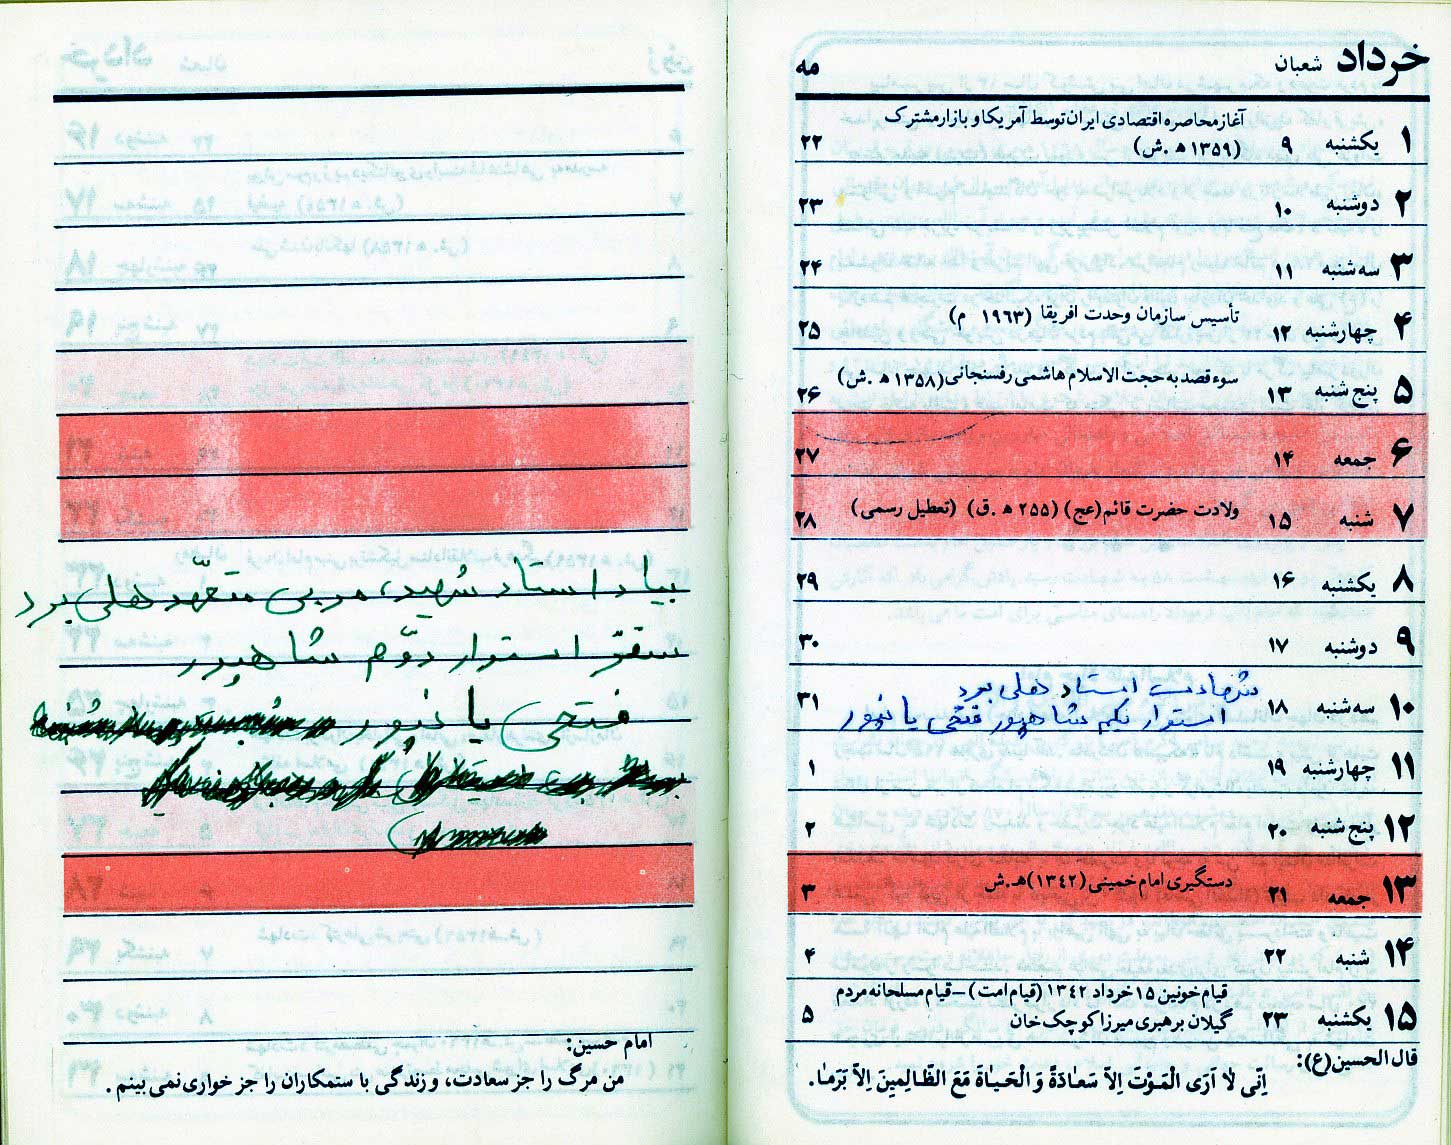 خرداد شعبان مه
۱ یکشنبه ۹ آغاز محاصره اقتصادی ایران توسط آمریکا و بازار مشترک
(۱۳۵۹ ه‍ .ش) ۲۲
۲ دوشنبه ۱۰ ۲۳
۳ سه شنبه ۱۱ ۲۴
۴ چهارشنبه ۱۲ تأسیس سازمان وحدت افریقا (۱۹۶۳ م) ۲۵
۵ پنج شنبه ۱۳ سوء قصد به حجت الاسلام هاشمی رفسنجانی (۱۳۵۸ ه‍ .ش) ۲۶
۶ جمعه ۱۴ ۲۷
۷ شنبه ۱۵ ولادت حضرت قائم (عج) (۲۵۵ ه‍ .ق) (تعطیل رسمی) ۲۸
۸ یکشنبه ۱۶ ۲۹
۹ دوشنبه ۱۷ ۳۰
شهادت استاد هلی برد
۱۰ سه شنبه ۱۸ استوار یکم شاهپور فتحی یا نمور ۳۱
۱۱ چهارشنبه ۱۹ ۱
۱۲ پنج شنبه ۲۰ ۲
۱۳ جمعه ۲۱ دستگیری امام خمینی (۱۳۴۲) ه‍.ش ۳
۱۴ شنبه ۲۲ ۴
قیام خونین ۱۵ خرداد ۱۳۴۲ (قیام امت) – قیام مسلحانه مردم
۱۵ یکشنبه ۲۳ گیلان برهبری میرزا کوچک خان ۵
قال الحسین (ع):
اِنّی لا اَرَی الْمَوْتَ اِلاّ سَعادَةً وَ الْحَیاةَ مَعَ الظّالِمینَ اِلاّ بَرَماً.
بیاد استاد شهید، مربی متعهّد هلی برد
سقز استوار دوّم شاهپور
فتحی یا نمور
امام حسین:
من مرگ را جز سعادت، و زندگی با ستمکاران را جز خواری نمی بینم.